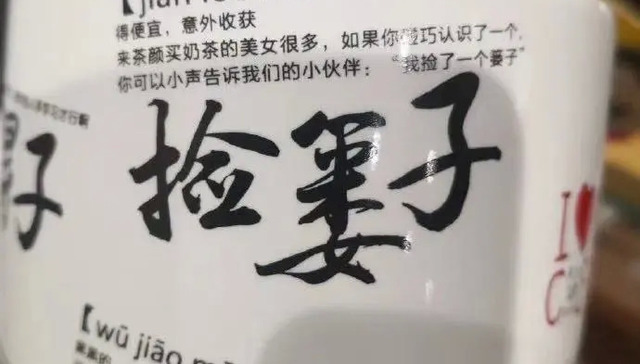 得便宜，意外收获
来茶颜买奶茶的美女很多，如果你碰巧认识了一个，
你可以小声告诉我们的小伙伴：“我捡了一个篓子”
捡篓子
子
I
C
【wū jiāo